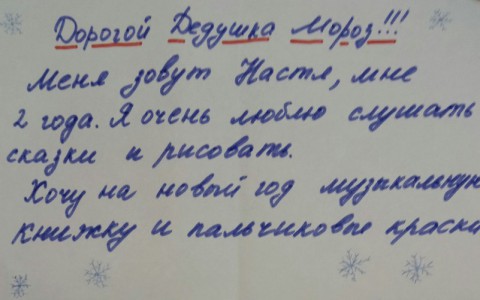 Дорогой Дедушка Мороз!!!
Меня зовут Настя, мне
2 года. Я очень люблю слушать
сказки и рисовать.
Хочу на новый год музыкальную
книжку и пальчиковые краски